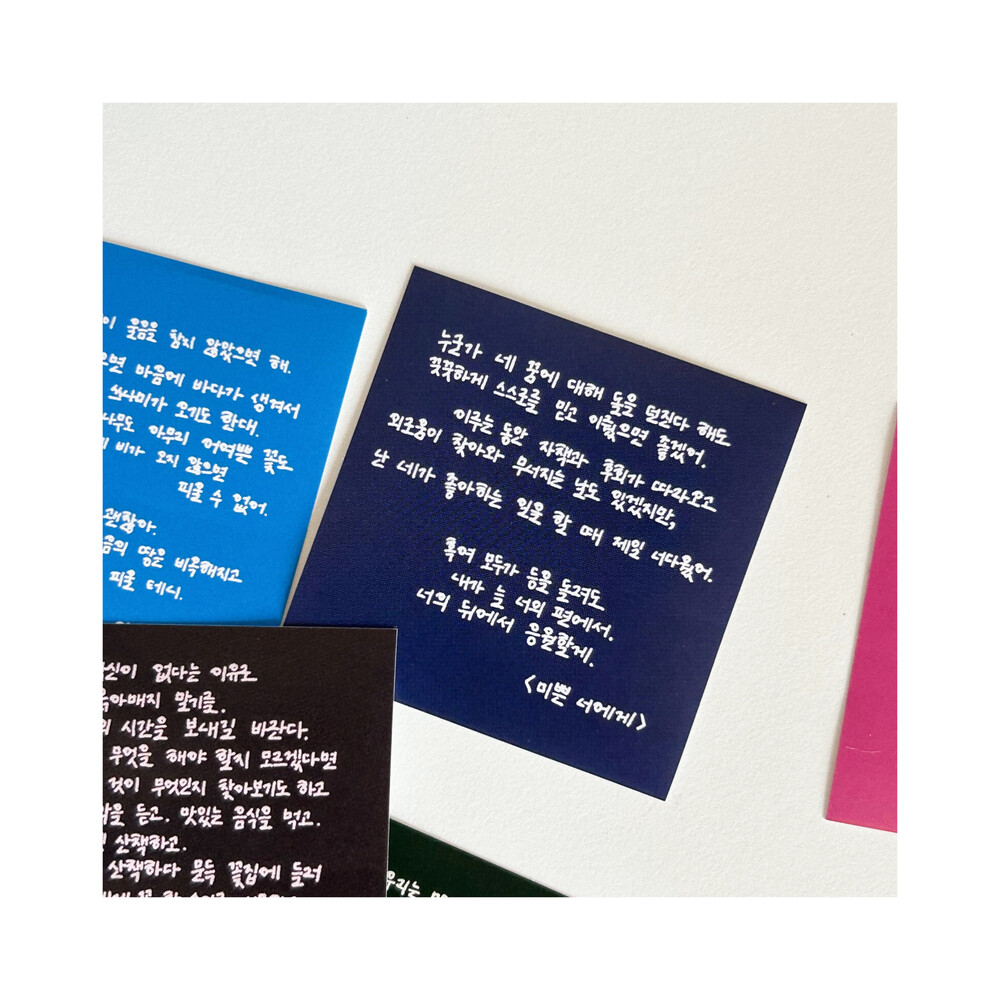 이 울음을 참지 않았으면 해.
으면 마음에 바다가 생겨서
쓰나미가 오기도 한대.
나무도 아무리 어여쁜 꽃도
비가 오지 않으면
피울 수 없어.
괜찮아.
음의 땅은 비옥해지고
피울 테시.
누군가 네 꿈에 대해 돌을 던진다 해도
꿋꿋하게 스스로를 믿고 이뤘으면 좋겠어.
이루는 동안 자책과 후회가 따라오고
외로움이 찾아와 무너지는 날도 있겠지만,
난 네가 좋아하는 일을 할 때 제일 너다웠어.
혹여 모두가 등을 돌려도
내가 늘 너의 편에서.
너의 뒤에서 응원할게.
<미쁜 너에게>
없다는 이유로
옭아매지 말기를.
시간을 보내길 바란다.
무엇을 해야 할지 모르겠다면
것이 무엇인지 찾아보기도 하고
듣고. 맛있는 음식을 먹고.
산책하고.
산책하다 문득 꽃집에 들러
우리는